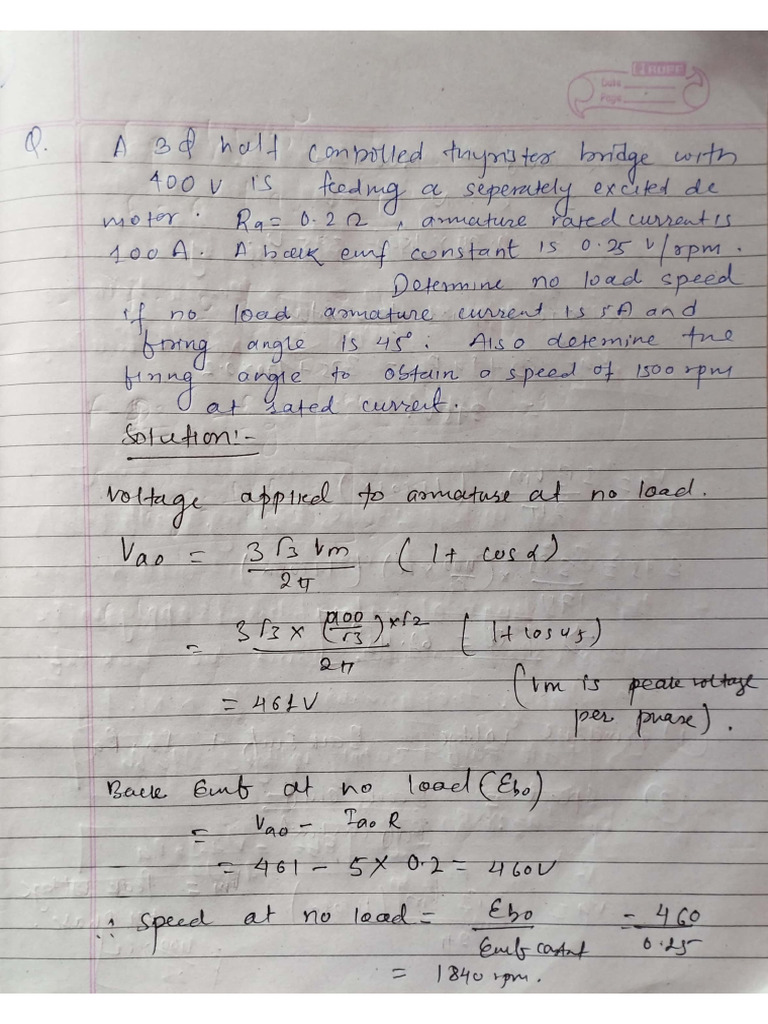 RUPE
Date
Page
Q. A 3ϕ half controlled thyristor bridge with
400 V is feeding a seperately excited dc
motor. Ra = 0.2 Ω, armature rated current is
100 A. A back emf constant is 0.25 V/rpm.
Determine no load speed
if no load armature current is 5A and
firing angle is 45°. Also detemine the
firing angle to obtain a speed of 1500 rpm
at rated current.
Solution:-
Voltage applied to armature at no load.
Vao = 3√3 Vm / 2π (1 + cos α)
= 3√3 × (400/√3) × √2 / 2π (1 + cos 45)
= 461V (Vm is peak voltage
per phase).
Back Emf at no load (Ebo)
= Vao - Iao R
= 461 - 5 × 0.2 = 460V
∴ Speed at no load = Ebo / Emf const = 460 / 0.25
= 1840 rpm.